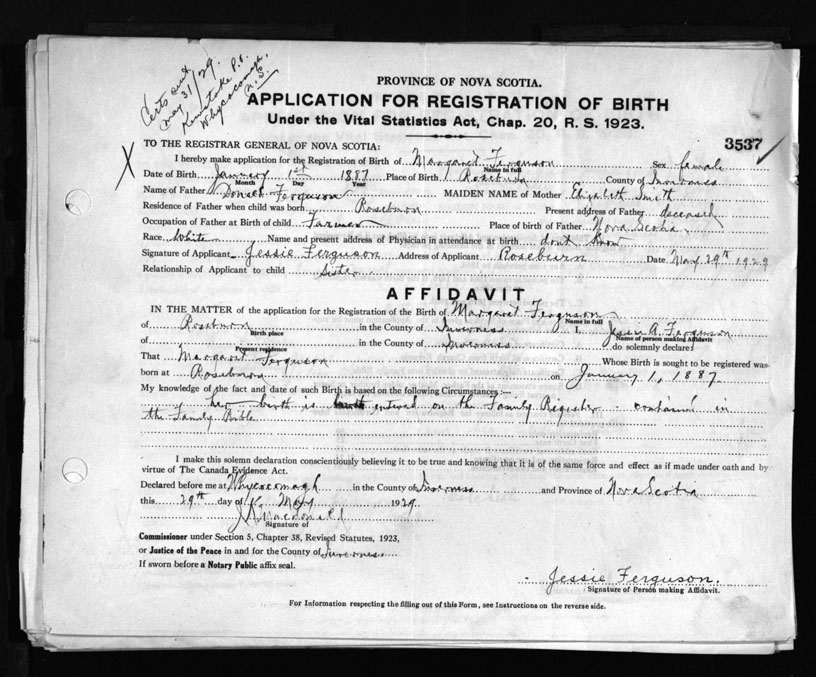 Cert sent
May 31/29.
P.O.
Whycocomagh,
N.S.
PROVINCE OF NOVA SCOTIA.
APPLICATION FOR REGISTRATION OF BIRTH
Under the Vital Statistics Act, Chap. 20, R. S. 1923.
3537
TO THE REGISTRAR GENERAL OF NOVA SCOTIA:
X I hereby make application for the Registration of Birth of Margaret Ferguson Sex female
Name in full
Date of Birth January 1st 1887 Place of Birth Roseburn County of Inverness
Month Day Year
Name of Father Donald Ferguson MAIDEN NAME of Mother Elizabeth Smith
Residence of Father when child was born Roseburn Present address of Father deceased
Occupation of Father at Birth of child Farmer Place of birth of Father Nova Scotia
Race White Name and present address of Physician in attendance at birth dont know
Signature of Applicant Jessie Ferguson Address of Applicant Roseburn Date May 29th 1929
Relationship of Applicant to child sister
AFFIDAVIT
IN THE MATTER of the application for the Registration of the Birth of Margaret Ferguson
Name in full
of Roseburn in the County of Inverness I, Jessie A. Ferguson
Birth place Name of person making Affidavit
of in the County of Inverness do solemnly declare:
Present residence
That Margaret Ferguson Whose Birth is sought to be registered was
born at Roseburn on January 1, 1887
My knowledge of the fact and date of such Birth is based on the following Circumstances:—
her birth is entered on the Family Register - contained in
the Family Bible
I make this solemn declaration conscientiously believing it to be true and knowing that it is of the same force and effect as if made under oath and by
virtue of The Canada Evidence Act.
Declared before me at Whycocomagh in the County of Inverness and Province of Nova Scotia
this 29th day of May 1929
Macdonald
Signature of
Commissioner under Section 5, Chapter 38, Revised Statutes, 1923,
or Justice of the Peace in and for the County of Inverness
If sworn before a Notary Public affix seal.
Jessie Ferguson.
Signature of Person making Affidavit.
For Information respecting the filling out of this Form, see Instructions on the reverse side.